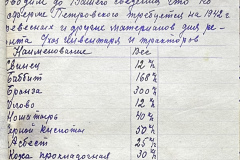 водим до Вашего сведения что по
Петровского требуется на 1942 г
и других материалов для ре-
инвентаря и тракторов
Наименование Вес
Свинец 12 кг
Баббит 168 кг
Бронза 300 кг
Олово 12 кг
Ношатырь 40 кг
Кислоты 50 кг
Асбест 25 кг
Кожа прокладочная 30 кг